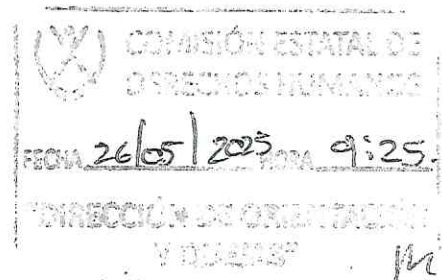 COMISIÓN ESTATAL DE
DERECHOS HUMANOS
FECHA 26/05/2025 HORA 9:25.
"DIRECCIÓN DE ORIENTACIÓN
Y QUEJAS"